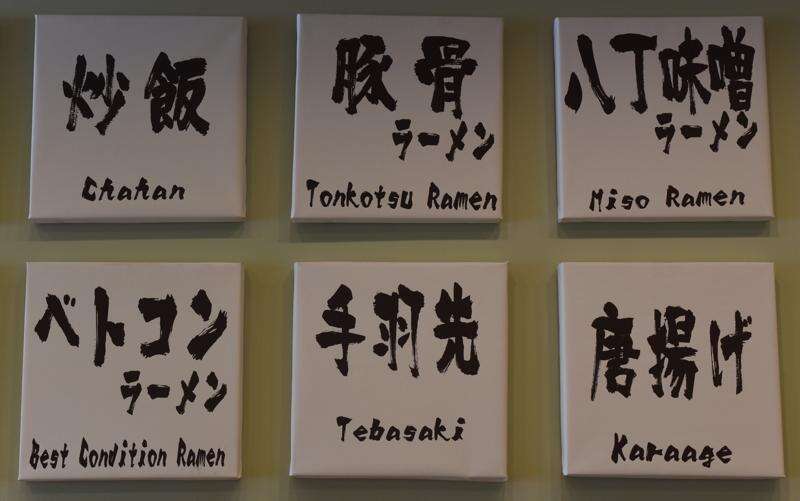 炒飯
Chahan
豚骨
ラーメン
Tonkotsu Ramen
八丁味噌
ラーメン
Miso Ramen
ベトコン
ラーメン
Best Condition Ramen
手羽先
Tebasaki
唐揚げ
Karaage